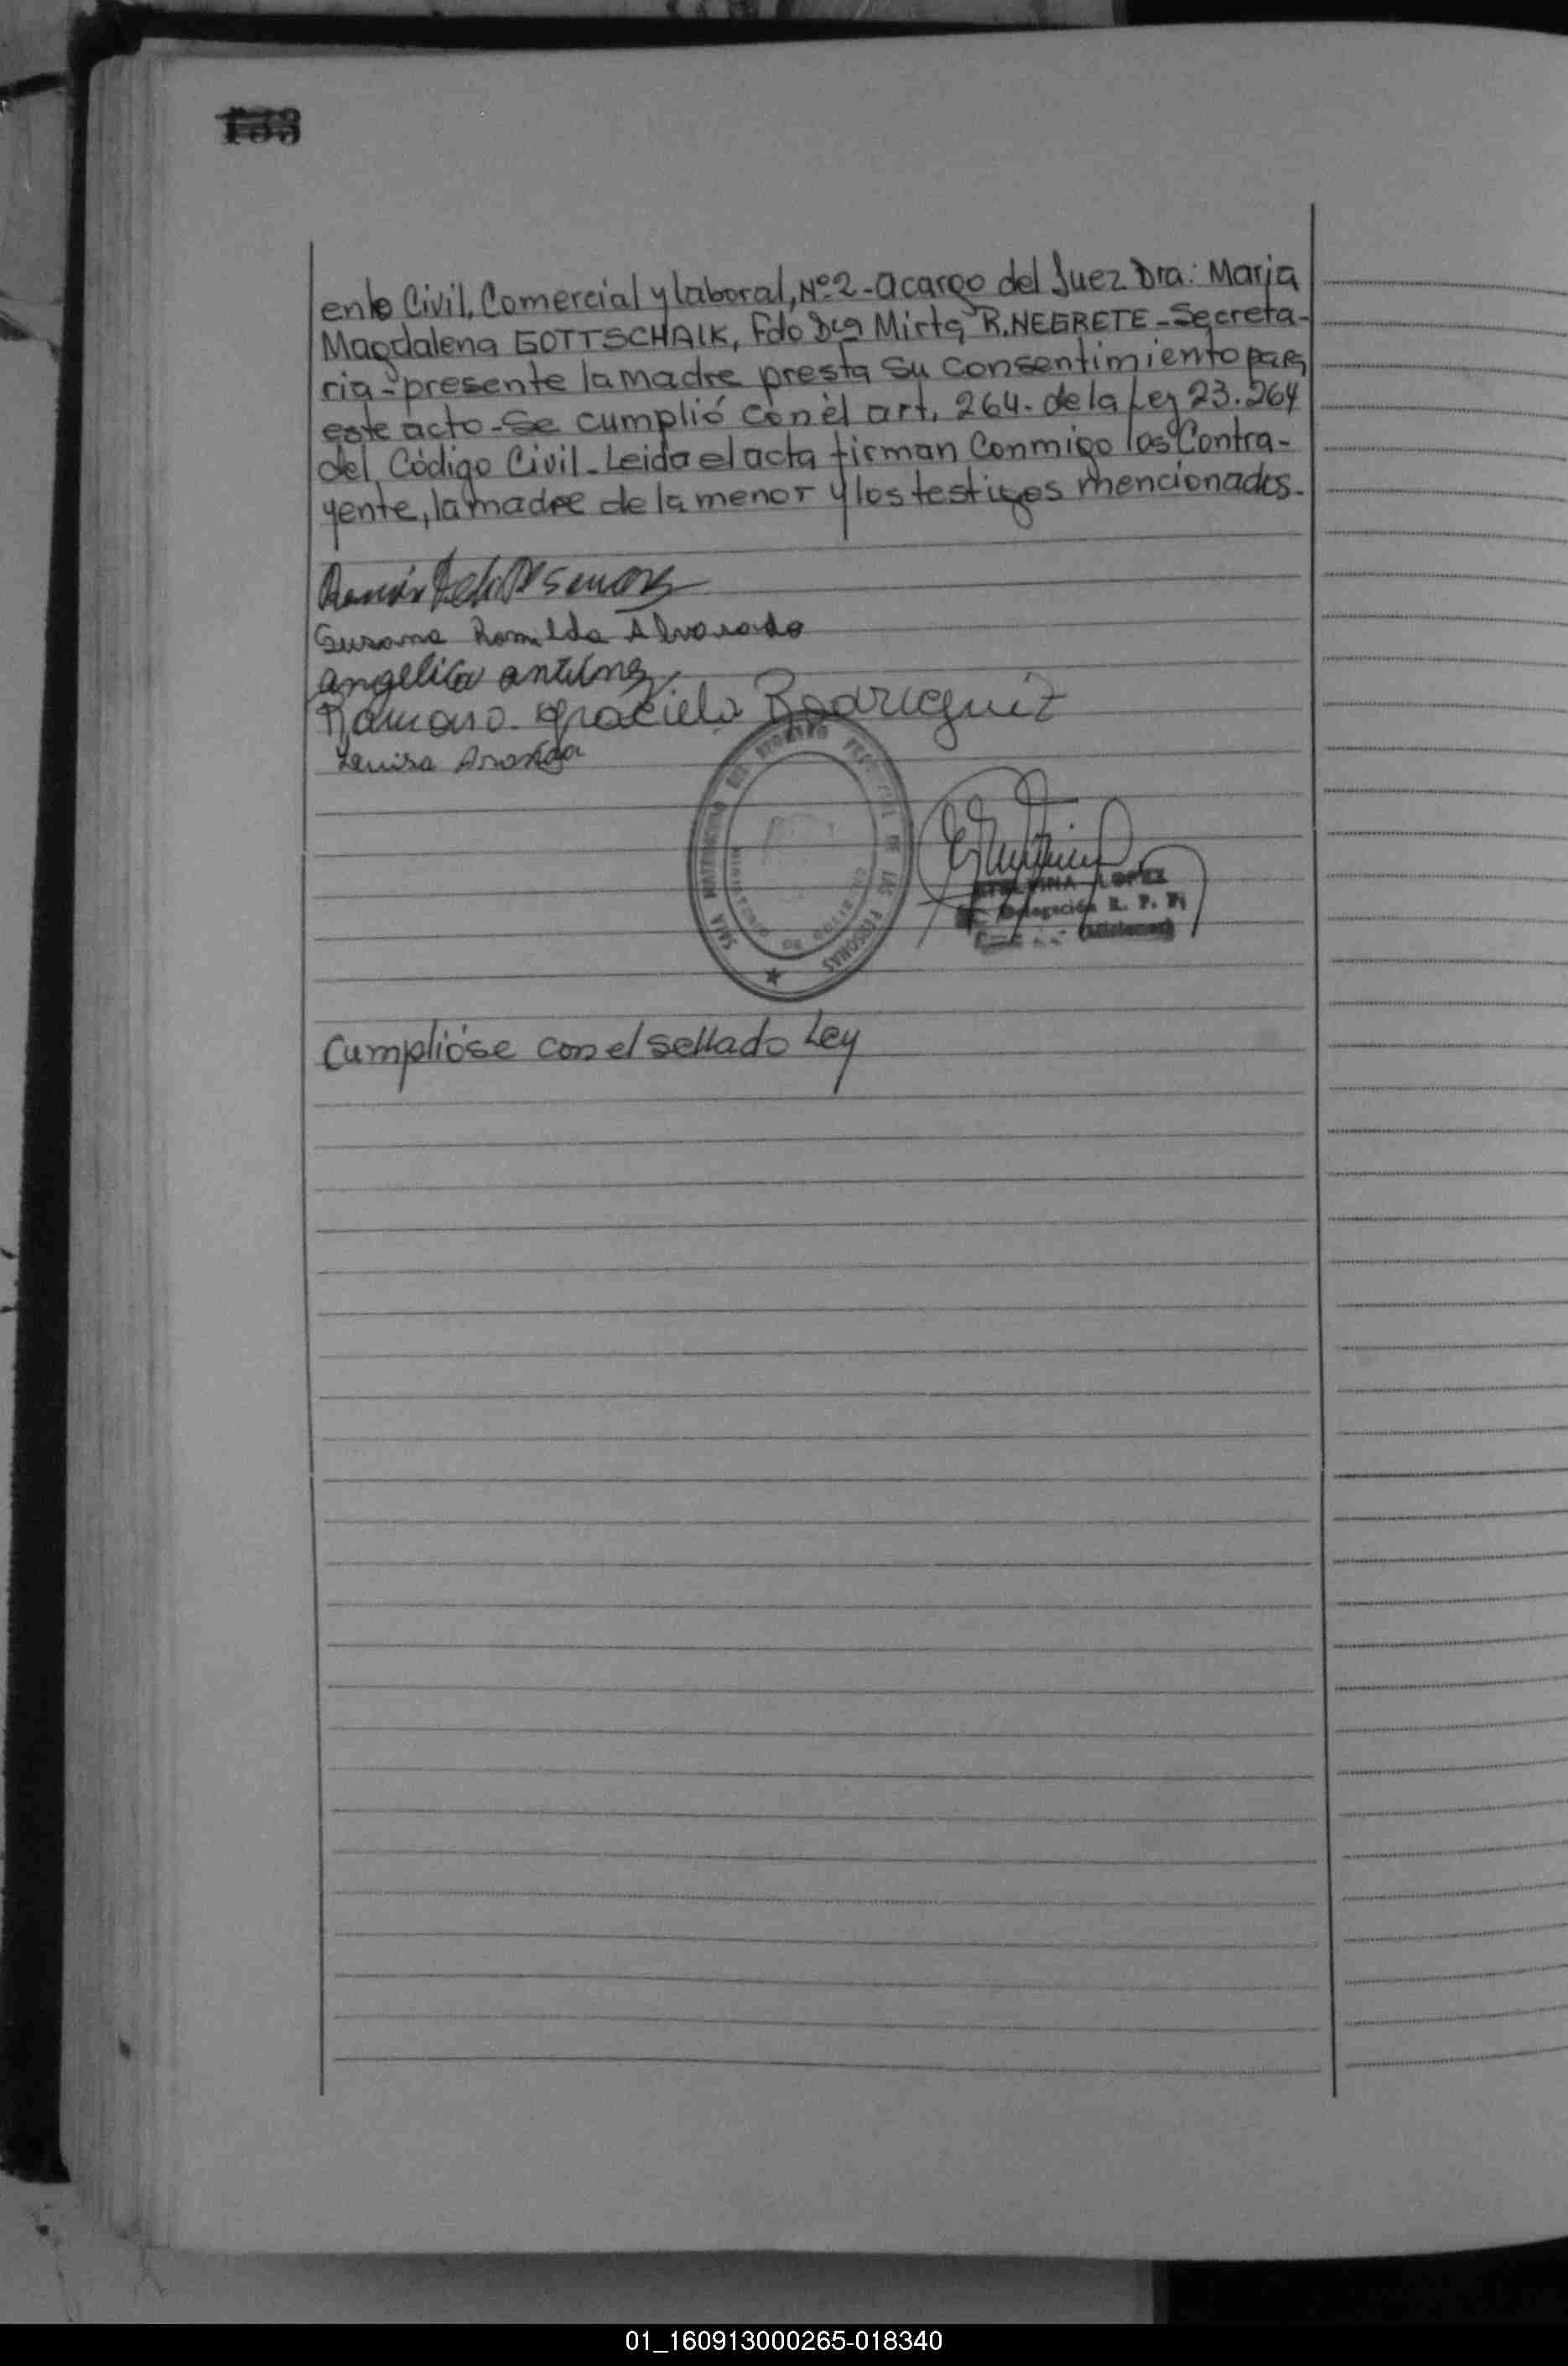 133
ente Civil, Comercial y laboral, Nº2-acargo del Juez Dra: Maria
Magdalena GOTTSCHALK, Fdo Dra Mirta R. NEGRETE-Secreta-
ria-presente la madre presta su consentimiento para
este acto-Se cumplió con èl art. 264. de la Ley 23.264
del Código Civil-Leida el acta firman Conmigo los Contra-
yente, la madre de la menor y los testigos mencionados.
Ramón
Susana Romilda Alvarado
Angelica
Ramona Graciela Rodriguez
LOPEZ
Delegación R. P. P.
(Misiones)
DE LAS PERSONAS
Cumplióse con el sellado Ley
01_160913000265-018340